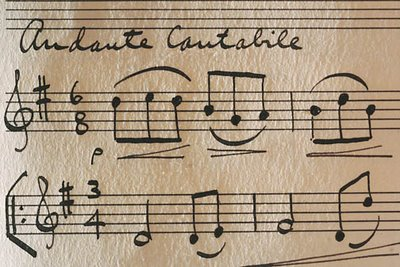 Andante Cantabile
6
8
p
3
4